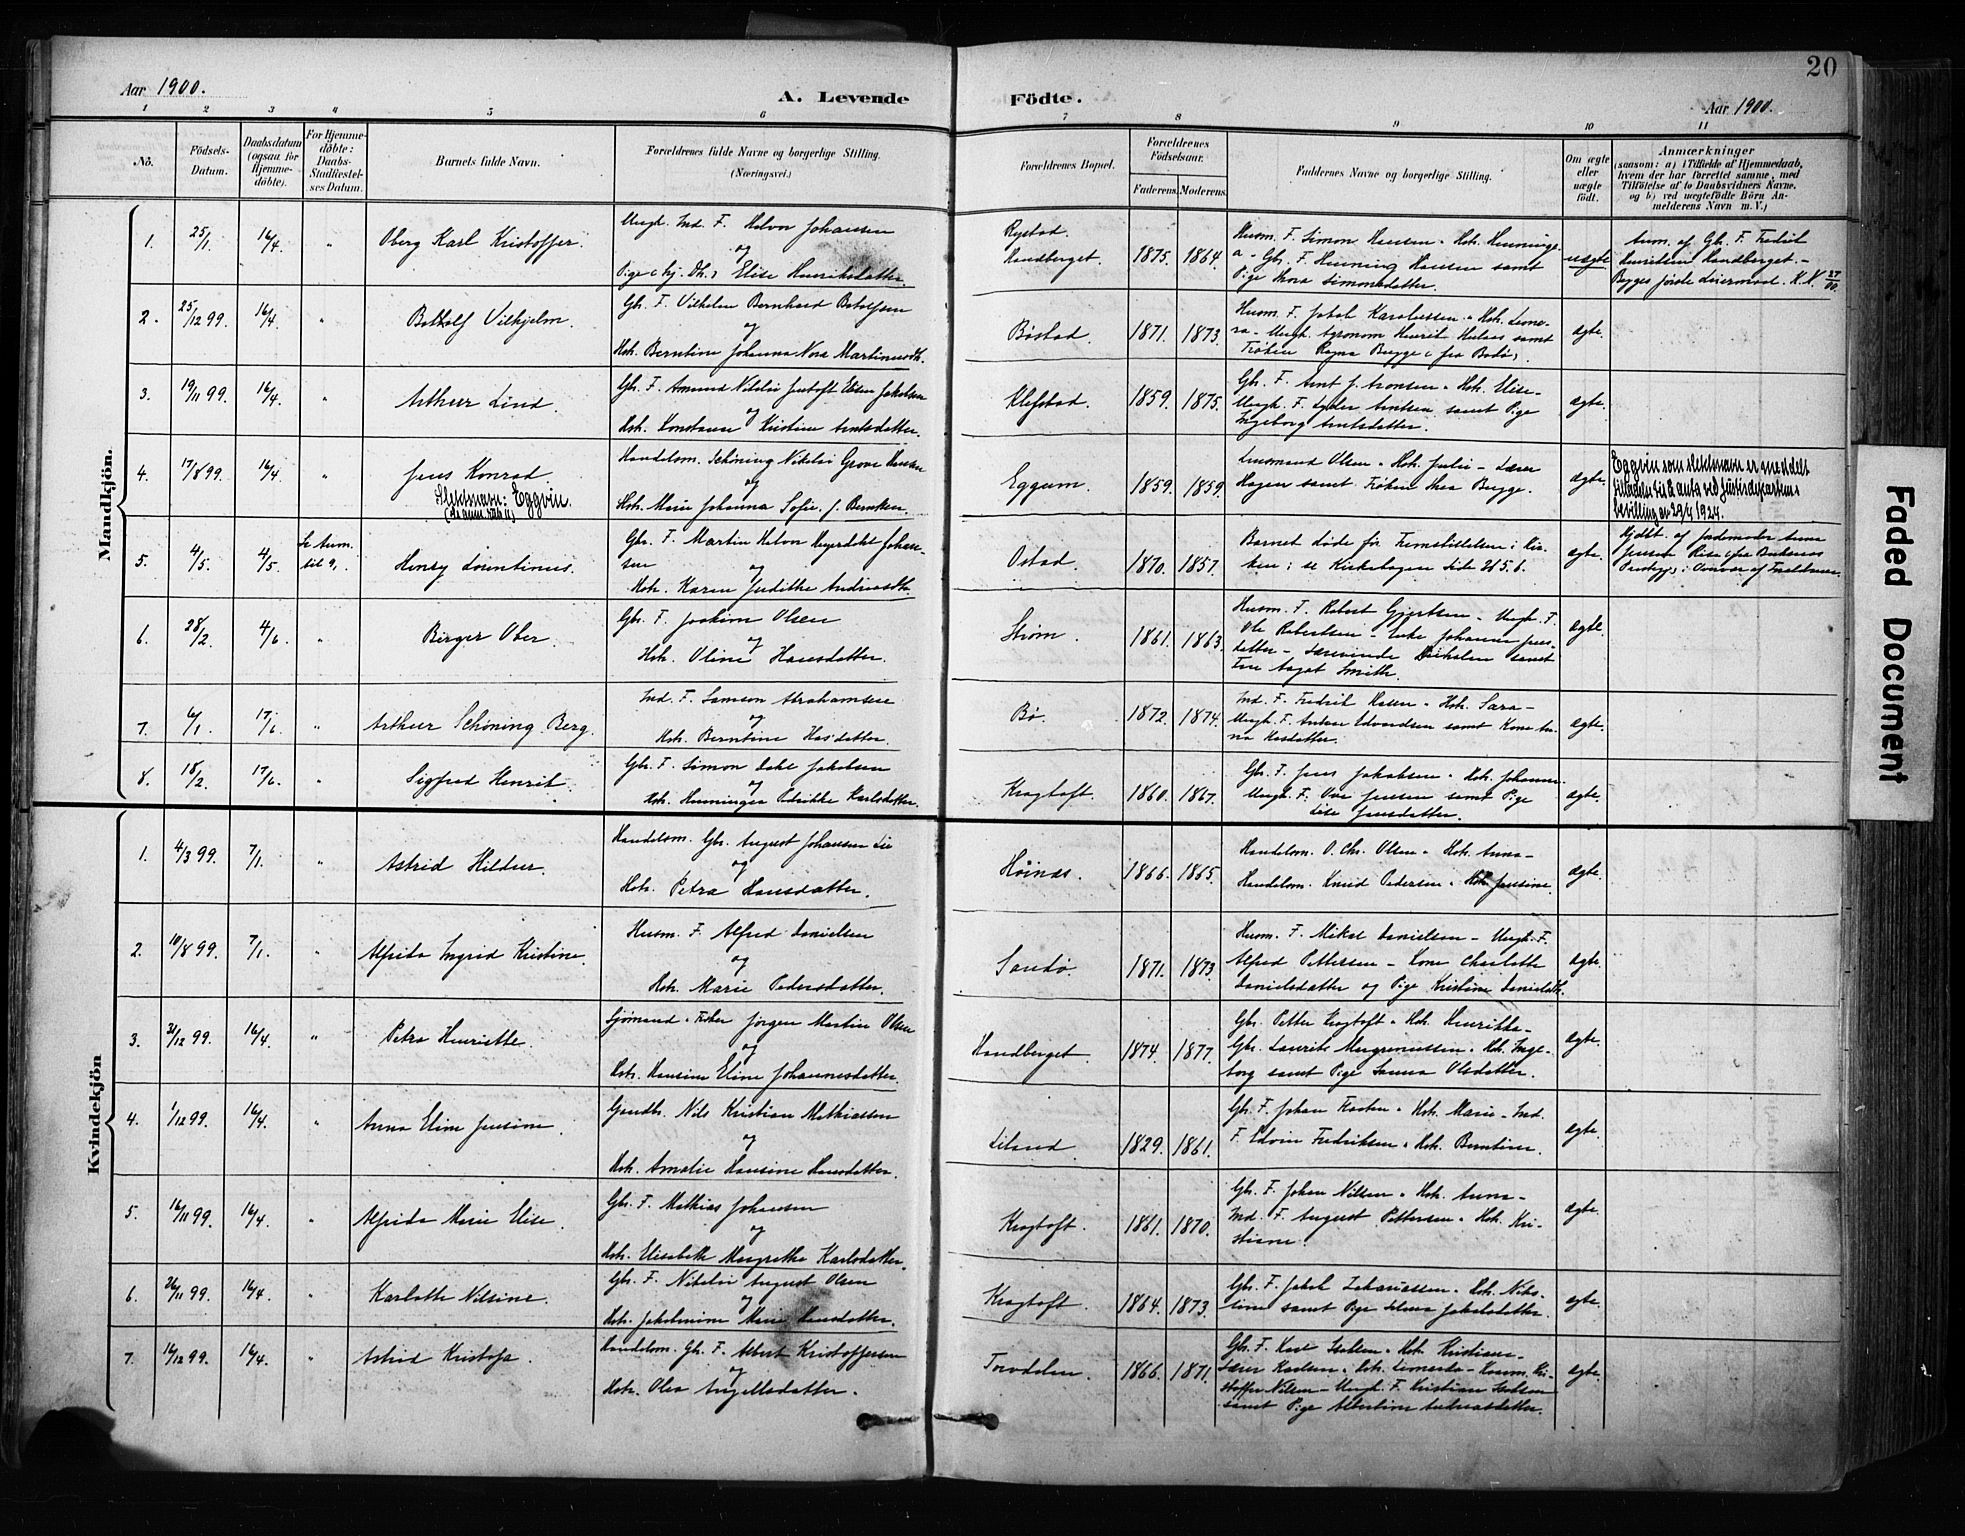 20
Aar 1900.
A. Levende Födte.
Aar 1900.
1 2 3 4 5 6 7 8 9 10 11
No.
Födsels-
Datum.
Daabsdatum
(ogsaa for
Hjemme-
döbte).
For Hjemme-
döbte:
Daabs-
Stadfestel-
ses Datum.
Barnets fulde Navn.
Forældrenes fulde Navne og borgerlige Stilling.
(Næringsvei.)
Forældrenes Bopæl.
Forældrenes
Födselsaar.
Faderens. Moderens.
Faddernes Navne og borgerlige Stilling.
Om ægte
eller
uægte
födt.
Anmærkninger
(saasom: a) i Tilfælde af Hjemmedaab,
hvem der har forrettet samme, med
Tilföielse af to Daabsvidners Navne.
og b) ved uægtefödte Börn An-
melderens Navn m. V.)
Mandkjön.
1. 25/1. 16/4. " Oberg Karl Kristoffer.
Ungk. Ind. F. Halvor Johansen
og
Pige Elise Henriksdatter
Rystad.
Handberget. 1875. 1864.
Husm. F. Simon Hansen
Gbr. F. Henning Hansen samt
Pige Thora Simonsdatter.
uægte
Anm. af Gbr. F. Fredrik
Henriksen Handberget. -
Begges første Leiermaal. 27/00.
2. 25/12 99. 16/4. " Bottolf Vilhjelm.
Gbr. F. Vilhelm Bernhard Botolfsen
og
Hstr. Berntine Johanna Nora Martinusdtr.
Bøstad. 1871. 1873.
Husm. F. Jakob Karolussen
Ungk. Agronom Henrik samt
Frøken Ragna Bugge (fra Bodø).
Ægte.
3. 19/11 99. 16/4. " Arthur Lind.
Gbr. F. Amund Nikolai Jentoft Elisen Jakobsen
og
Hstr. Konstanse Kristine Arntsdatter.
Klefstad. 1859. 1875.
Gbr. F. Arnt J. Aronsen Hstr. Elise-
Ungk. F. Peder Arntsen samt Pige
Ingeborg Arntsdatter.
Ægte.
4. 17/8 99. 16/4. " Jens Konrad.
Slektsnavn: Eggvin.
(se anm. rub. 11)
Handelsm. Schöning Nikolai Grove Hansen
og
Hstr. Marie Johanna Sofie, f. Berntsen.
Eggum. 1859. 1859.
Lensmand Olsen Hstr. Julie - Lærer
Hagen samt Frøken Thea Bugge.
Ægte.
Eggvin som slektsnavn er meddelt
tilladelse til å anta ved Justisdepartem.
bevilling av 29/4 1924.
5. 4/5. 4/5. Se Anm.
til 9, Henry Lorentinus.
Gbr. F. Martin Halvor Johan-
sen og
Hstr. Karen Judithe Andreasdtr.
Ostad. 1870. 1857.
Barnet døde før Fremstillelsen i Kir-
ken; se Kirkebogen Side 215. 6.
Ægte.
Hjdbt. af Jordmoder Anna
Jensen
6. 28/2. 4/6. " Birger Ober.
Gbr. F. Joakim Olsen
og
Hstr. Oline Hansdatter.
Strøm. 1861. 1863.
Husm. F. Robert Gjertsen - Ungk. F.
Ole Robertsen - Enke Johanna Jens-
datter - Lærerinde samt
Frue Aagot Smith.
Ægte.
7. 6/1. 17/6. " Arthur Schöning Berg.
Ind. F. Samson Abrahamsen
og
Hstr. Berntine Hasdatter.
Bø. 1872. 1874.
Ind. F. Fredrik Hasen Hstr. Sara -
Ungk. F. Anton Edvardsen samt Kone An-
na Hasdatter.
Ægte.
8. 18/2. 17/6. " Sigfred Henrik.
Gbr. F. Simon Dahl Jakobsen
og
Hstr. Henninga Petrikke Karlsdatter.
Kragtoft. 1860. 1867.
Gbr. F. Jens Jakobsen Hstr. Johanna-
Ungk. F. Ove Jensen samt Pige
Lise Jensdatter.
Ægte.
Kvindekjön
1. 4/3 99. 7/1. " Astrid Hildur.
Handelsm. Gbr. August Johansen Lie
og
Hstr. Petra Hansdatter.
Høinæs. 1866. 1865.
Handelsm. O. Chr. Olsen Hstr. Anna -
Handelsm. Knud Pedersen Hstr. Jensine.
Ægte.
2. 10/8 99. 7/1. " Alfrida Ingrid Kristine.
Husm. F. Alfred Danielsen
og
Hstr. Marie Pedersdatter.
Sandø. 1871. 1873.
Husm. F. Mikal Danielsen - Ungk. F.
Alfred Pettersen - Kone Charlotte
Danielsdatter og Pige Kristine Danielsdtr.
Ægte.
3. 31/12 99. 16/4. " Petra Henriette.
Sjømand Fisker Jørgen Martin Olsen
og
Hstr. Hansine Eline Johannesdatter.
Handberget. 1874. 1877.
Gbr. Petter Kragtoft Hstr. Henrikka-
Gbr. Laurits Magnussen Hstr. Inge-
borg samt Pige Sanna Olsdatter.
Ægte.
4. 1/12 99. 16/4. " Anna Eline Jensine.
Gaardbr. Nils Kristian Mathiassen
og
Hstr. Amalie Hansine Hansdatter.
Liland. 1829. 1861.
Gbr. F. Johan Hstr. Marie - Ind.
F. Edvin Fredriksen Hstr. Berntine.
Ægte.
5. 16/11 99. 16/4. " Alfrida Marie Elise.
Gbr. F. Mathias Johansen
og
Hstr. Elisabeth Margrethe Karlsdatter.
Kragtoft. 1861. 1870.
Gbr. F. Johan Nilsen Hstr. Anna -
Ind. F. August Pettersen Hstr. Kri-
stiane
Ægte.
6. 26/11 99. 16/4. " Karlotte Nilsine.
Gbr. F. Nikolai August Olsen
og
Hstr. Jakobmine Marie Hansdatter.
Kragtoft. 1864. 1873.
Gbr. F. Jakob Zakariassen Hstr. Nils-
sine samt Pige Selma Jakobsdatter.
Ægte.
7. 16/12 99. 16/4. " Astrid Kristofa.
Handelsm. Gbr. F. Albert Kristoffersen
og
Hstr. Olea Angellsdatter.
Torvdalen. 1866. 1871.
Gbr. F. Karl Hstr. Kristiane-
Lærer Karlsen Hstr. Leonarda - Husm. Kri-
stoffer Nilsen - Ungk. F. Kristian
samt Pige Albertine Andreasdatter.
Ægte.
Faded Document